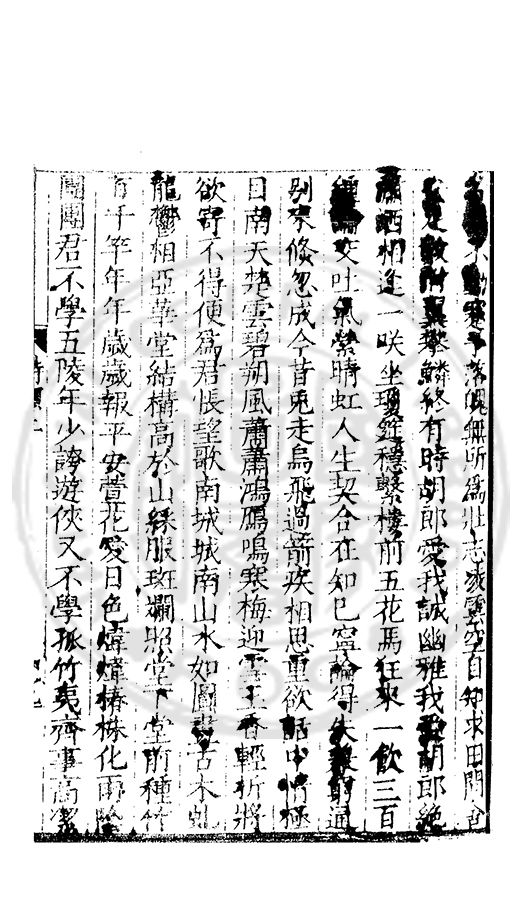 落魄無所為壯志凌雲空自知求田問舍
附翼攀鱗終有時胡郎愛我誠幽雅我愛胡郎絕
瀟洒相逢一咲坐瓊筵穩繫樓前五花馬狂來一飲三百
論交吐氣縈晴虹人生契合在知己寧論得失窮通
别來倐忽成今昔兎走烏飛過箭疾相思重欲話中情極
目南天楚雲碧朔風蕭蕭鴻鴈鳴寒梅迎雪玉香輕折將
欲寄不得便為君悵望歌南城城南山水如圖畫古木虬
龍欝相亞華堂結構高於山綵服斑斕照堂下堂前種竹
有千竿年年歲歲報平安萱花愛日色煒煒椿株化雨陰
團團君不學五陵年少誇遊俠又不學孤竹夷齊事高潔